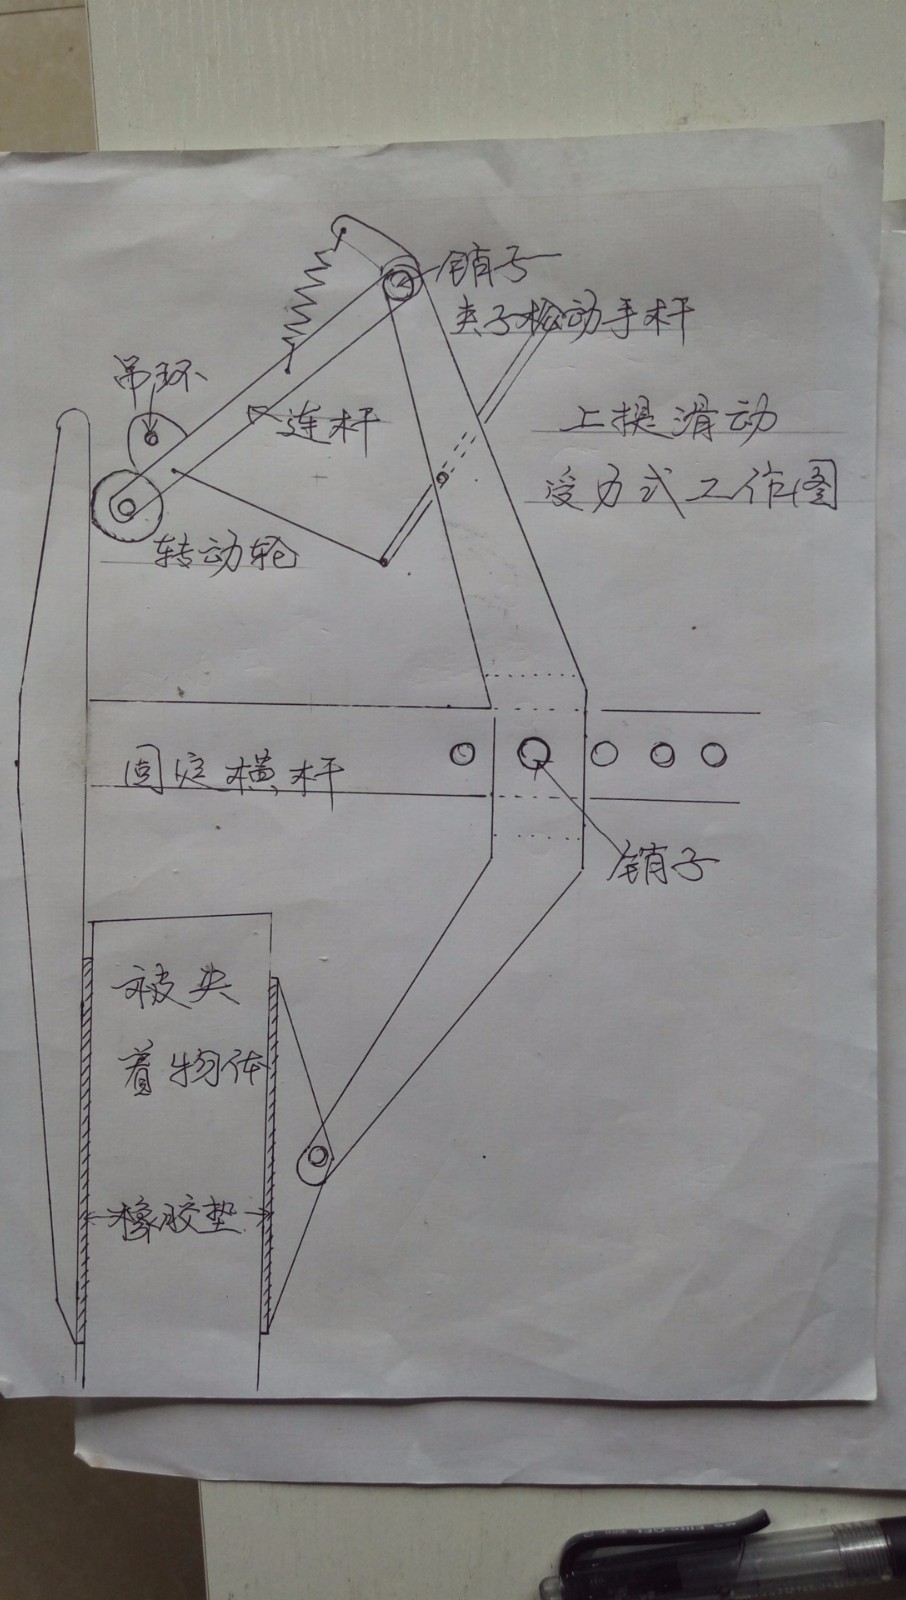 销子
夹子松动手杆
吊环
连杆
上提滑动
受力式工作图
转动轮
固定横杆
销子
被夹
着物体
橡胶垫